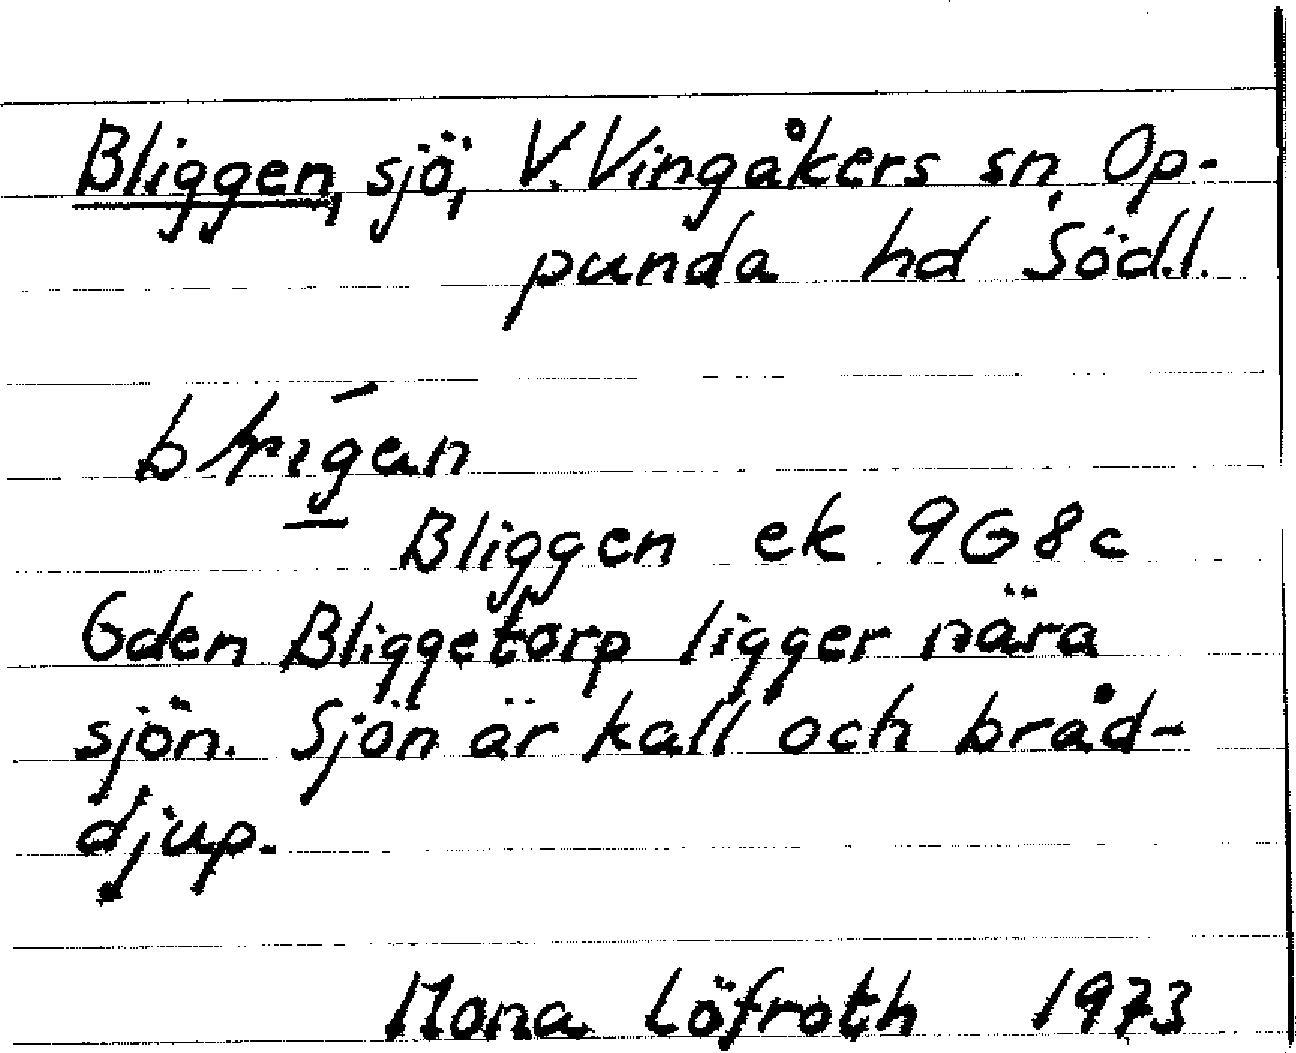 Bliggen, sjö, V. Vingåkers sn, Op-
punda hd Södl.
Bliggen ek 9G8c
Gden Bliggetorp ligger nära
sjön. Sjön är kall och bråd-
djup.
Mona Löfroth 1973